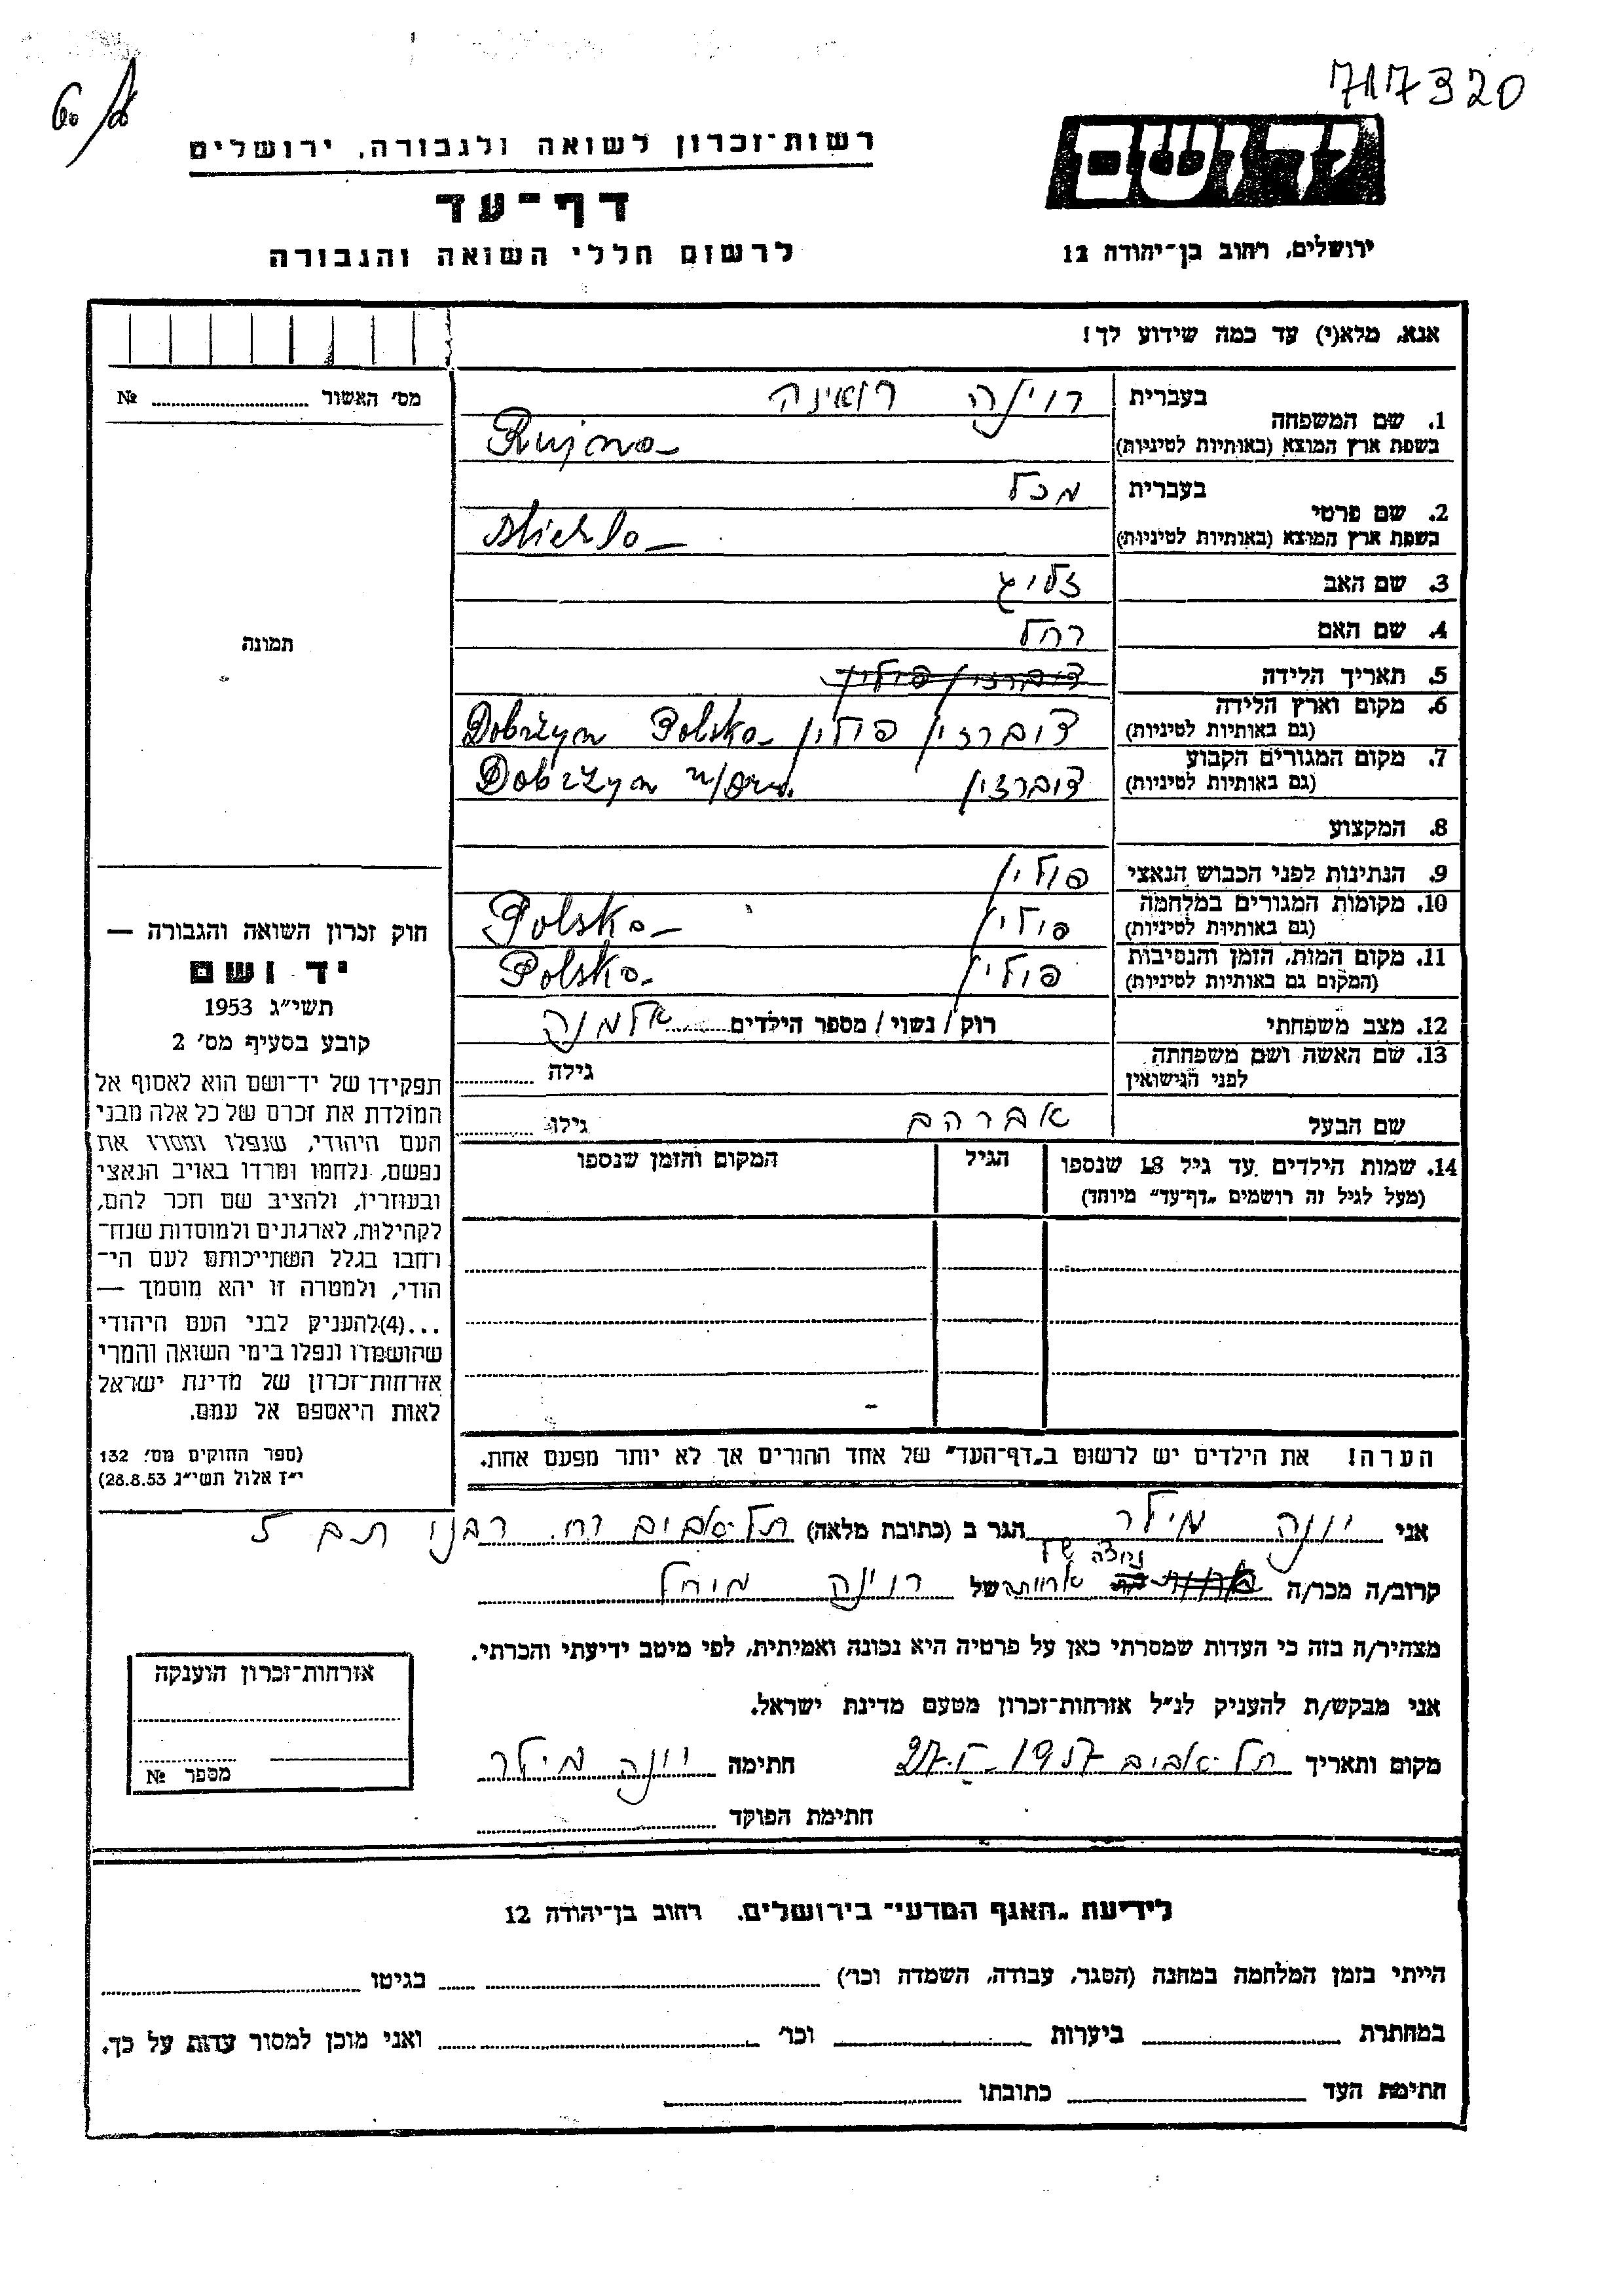 717320
רשות-זכרון לשואה ולגבורה, ירושלים
יד ושם
דף-עד
לרשום חללי השואה והגבורה
ירושלים, רחוב בן-יהודה 12
אנא, מלא(י) עד כמה שידוע לך!
מס' האשור № 
1. שם המשפחה בעברית רוינה
בשפת ארץ המוצא (באותיות לטיניות) Rujna
2. שם פרטי בעברית מכל
בשפת ארץ המוצא (באותיות לטיניות) Michla
3. שם האב זליג
4. שם האם רחל
5. תאריך הלידה דוברזין פולין
6. מקום וארץ הלידה (גם באותיות לטיניות) דוברזין פולין Dobrżyn Polska
7. מקום המגורים הקבוע (גם באותיות לטיניות) דוברזין Dobrżyn n/Drw.
8. המקצוע
9. הנתינות לפני הכבוש הנאצי פולין
10. מקומות המגורים במלחמה (גם באותיות לטיניות) פולין Polska
11. מקום המות, הזמן והנסיבות (המקום גם באותיות לטיניות) פולין Polska
12. מצב משפחתי רוק / נשוי / מספר הילדים אלמנה
13. שם האשה ושם משפחתה לפני הנישואין גילה
שם הבעל אברהם גילו
14. שמות הילדים עד גיל 18 שנספו הגיל המקום והזמן שנספו
(מעל לגיל זה רושמים „דף-עד" מיוחד)
הערה! את הילדים יש לרשום ב„דף-העד" של אחד ההורים אך לא יותר מפעם אחת.
תמונה
חוק זכרון השואה והגבורה —
יד ושם
תשי"ג 1953
קובע בסעיף מס' 2
תפקידו של יד-ושם הוא לאסוף אל
המולדת את זכרם של כל אלה מבני
העם היהודי, שנפלו ומסרו את
נפשם, נלחמו ומרדו באויב הנאצי
ובעוזריו, ולהציב שם וזכר להם,
לקהילות, לארגונים ולמוסדות שנח-
רבו בגלל השתייכותם לעם הי-
הודי, ולמטרה זו יהא מוסמך —
...(4) להעניק לבני העם היהודי
שהושמדו ונפלו בימי השואה והמרי
אזרחות-זכרון של מדינת ישראל
לאות היאספם אל עמם.
(ספר החוקים מס' 132
י"ז אלול תשי"ג 28.8.53)
אני יונה מילר הגר ב (כתובת מלאה) תל-אביב רח. רבנו תם 5
קרוב/ה מכר/ה של רוינה מיחל
מצהיר/ה בזה כי העדות שמסרתי כאן על פרטיה היא נכונה ואמיתית, לפי מיטב ידיעתי והכרתי.
אני מבקש/ת להעניק לנ"ל אזרחות-זכרון מטעם מדינת ישראל.
מקום ותאריך תל-אביב 27.I.1957 חתימה יונה מילר
חתימת הפוקד
אזרחות-זכרון הוענקה
מספר №
לידיעת „האגף המדעי" בירושלים. רחוב בן-יהודה 12
הייתי בזמן המלחמה במחנה (הסגר, עבודה, השמדה וכו') בגיטו
במחתרת ביערות וכו' ואני מוכן למסור עדות על כך.
חתימת העד כתובתו